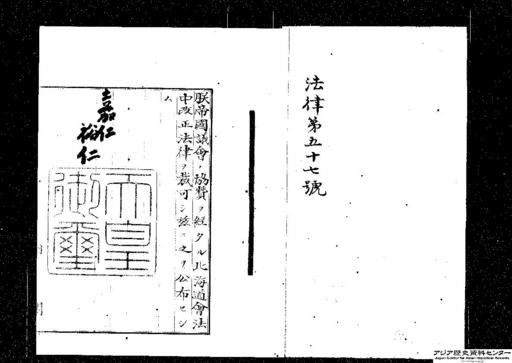 法律第五十七號
朕帝國議會ノ協賛ヲ經タル北海道會法
中改正法律ヲ裁可シ茲ニ之ヲ公布セシ
ム
嘉仁
裕仁
天皇
御璽
アジア歴史資料センター
Japan Center for Asian Historical Records